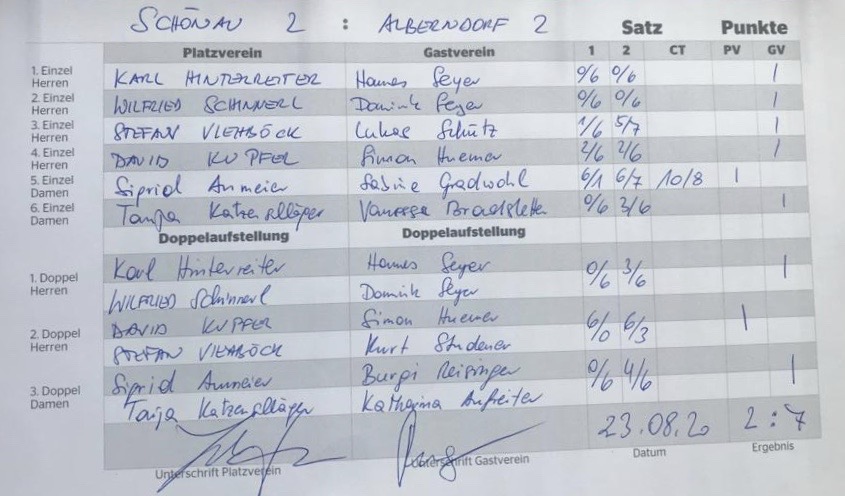 SCHÖNAU 2 : ALBERNDORF 2 Satz Punkte
Platzverein Gastverein 1 2 CT PV GV
1. Einzel Herren KARL HINTERREITER Hannes Seyer 0/6 0/6 1
2. Einzel Herren WILFRIED SCHINNERL Dominik Seyer 0/6 0/6 1
3. Einzel Herren STEFAN VIEHBÖCK Lukas Schütz 1/6 5/7 1
4. Einzel Herren DAVID KUPFER Simon Huemer 2/6 2/6 1
5. Einzel Damen Sigrid Anmeier Sabine Gradwohl 6/1 6/7 10/8 1
6. Einzel Damen Tanja Vanessa 0/6 3/6 1
Doppelaufstellung Doppelaufstellung
1. Doppel Herren
Karl Hinterreiter Hannes Seyer 0/6 3/6 1
WILFRIED Schinnerl Dominik Seyer
2. Doppel Herren
DAVID KUPFER Simon Huemer 6/0 6/3 1
STEFAN VIEHBÖCK Kurt
3. Doppel Damen
Sigrid Anmeier Burgi Reisinger 0/6 4/6 1
Tanja Katharina Aufreiter
23.08.20 2:7
Unterschrift Platzverein Unterschrift Gastverein Datum Ergebnis